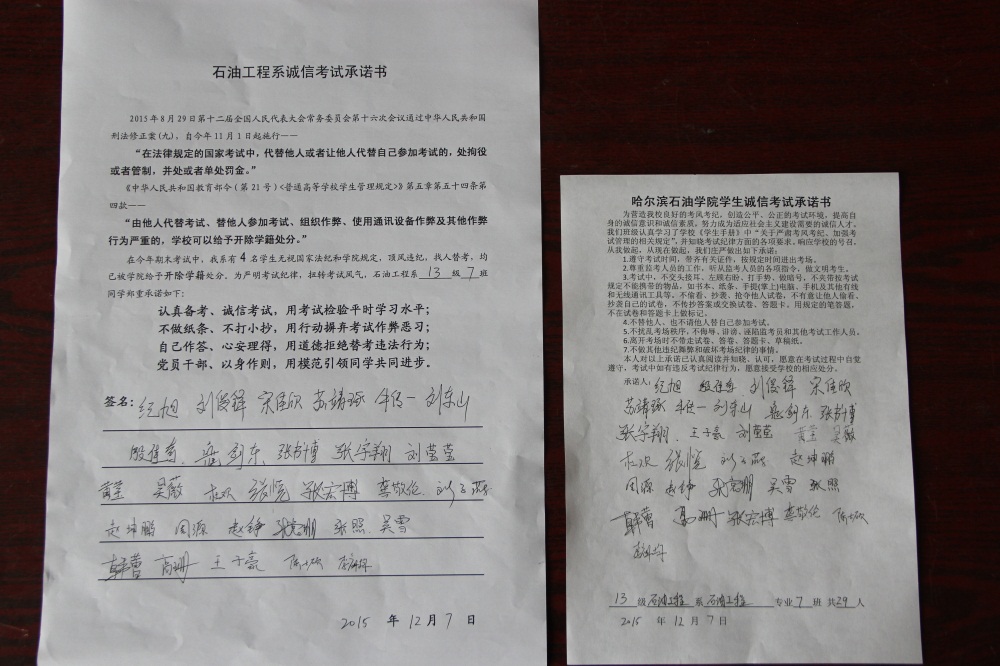 石油工程系诚信考试承诺书
2015年8月29日第十二届全国人民代表大会常务委员会第十六次会议通过中华人民共和国
刑法修正案(九)，自今年11月1日起施行——
“在法律规定的国家考试中，代替他人或者让他人代替自己参加考试的，处拘役
或者管制，并处或者单处罚金。”
《中华人民共和国教育部令（第21号）<普通高等学校学生管理规定>》第五章第五十四条第
四款——
“由他人代替考试、替他人参加考试、组织作弊、使用通讯设备作弊及其他作弊
行为严重的，学校可以给予开除学籍处分。”
在今年期末考试中，我系有4名学生无视国家法纪和学院规定，顶风违纪，找人替考，均
已被学院给予开除学籍处分。为严明考试纪律，扭转考试风气，石油工程系 13 级 7 班
同学郑重承诺如下：
认真备考、诚信考试，用考试检验平时学习水平；
不做纸条、不打小抄，用行动摒弃考试作弊恶习；
自己作答、心安理得，用道德拒绝替考违法行为；
党员干部、以身作则，用模范引领同学共同进步。
签名： 纪旭 刘俊锋 宋佳欣 苏靖琢 刘东山
张书博 张宇翔 刘莹莹
黄莹 吴薇 张悦 张宏博 李敬伦
赵坤鹏 周源 赵铮 张富朋 张照 吴雪
韩雪 高珊 王子豪
2015 年 12月 7 日
哈尔滨石油学院学生诚信考试承诺书
为营造我校良好的考风考纪，创造公平、公正的考试环境，提高自
身的诚信意识和诚信素质，努力成为适应社会主义建设需要的诚信人才，
我们班级认真学习了学校《学生手册》中“关于严肃考风考纪、加强考
试管理的相关规定”，并知晓考试纪律方面的各项要求，响应学校的号召，
从我做起，从现在做起，我们庄严做出如下承诺：
1.遵守考试时间，带齐有关证件，按规定时间进出考场。
2.尊重监考人员的工作，听从监考人员的各项指令，做文明考生。
3.考试中，不交头接耳、左顾右盼、打手势、做暗号，不夹带按考试
规定不能携带的物品，如书本、纸条、手提(掌上)电脑、手机及其他有线
和无线通讯工具等，不偷看、抄袭、抢夺他人试卷，不有意让他人偷看、
抄袭自己的试卷，不传抄答案或交换试卷、答题卡，用规定的笔答题，
不在试卷和答题卡上做标记。
4.不替他人、也不请他人替自己参加考试。
5.不扰乱考场秩序，不侮辱、诽谤、诬陷监考员和其他考试工作人员。
6.离开考场时不带走试卷、答卷、答题卡、草稿纸。
7.不做其他违纪舞弊和破坏考场纪律的事情。
本人对以上承诺已认真阅读并知晓、认可，愿意在考试过程中自觉
遵守，考试中如有违反考试纪律行为，愿意接受学校的相应处分。
承诺人： 纪旭 刘俊锋 宋佳欣
苏靖琢 刘东山 张书博
张宇翔 王子豪 刘莹莹 黄莹 吴薇
张悦 赵坤鹏
周源 赵铮 张富朋 吴雪 张照
韩雪 高珊 张宏博 李敬伦
13 级 石油工程 系 石油工程 专业 7 班 共 29 人
2015 年 12 月 7 日